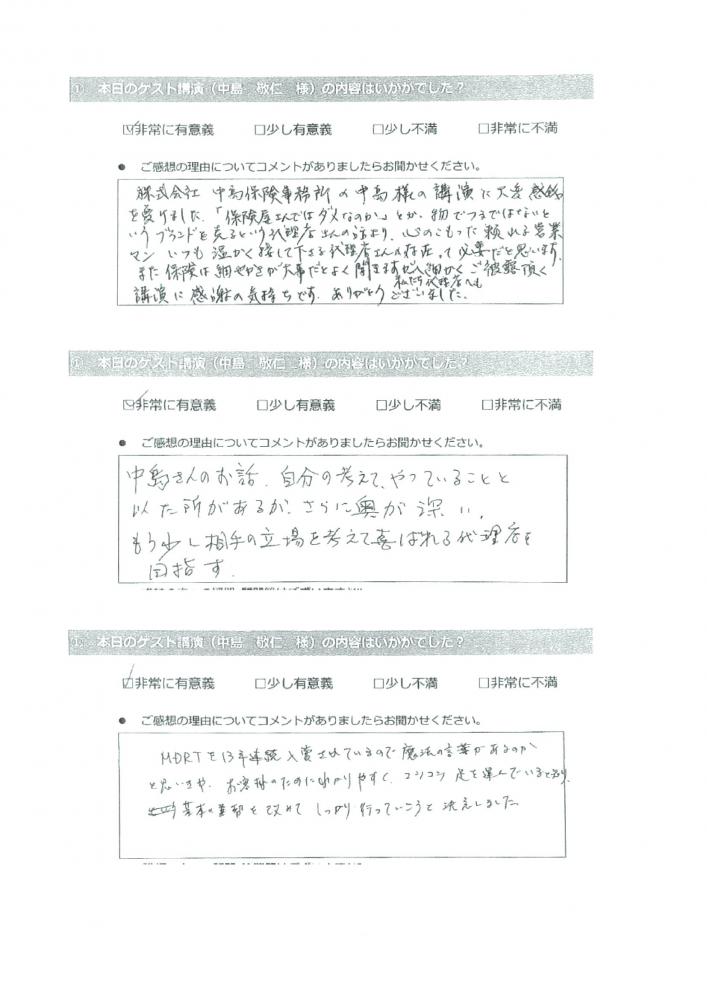 ① 本日のゲスト講演（中島 敬仁 様）の内容はいかがでした？
☑非常に有意義 □少し有意義 □少し不満 □非常に不満
● ご感想の理由についてコメントがありましたらお聞かせください。
株式会社 中島保険事務所の中島様の講演に大変感銘
を受けました。「保険屋さんではダメなのか」とか、物でつるではないと
いうブランドを売るという代理店さんの話より、心のこもった頼れる営業
マン いつも温かく接して下さる代理店さんの存在って必要だと思います。
また保険は細やかさが大事だとよく聞きますが、細かくご披露頂く
私たち代理店へも
講演に感謝の気持ちです。ありがとうございました。
① 本日のゲスト講演（中島 敬仁 様）の内容はいかがでした？
☑非常に有意義 □少し有意義 □少し不満 □非常に不満
● ご感想の理由についてコメントがありましたらお聞かせください。
中島さんのお話、自分の考えて、やっていることと
似た所があるが、さらに奥が深い。
もう少し相手の立場を考えて喜ばれる代理店を
目指す。
① 本日のゲスト講演（中島 敬仁 様）の内容はいかがでした？
☑非常に有意義 □少し有意義 □少し不満 □非常に不満
● ご感想の理由についてコメントがありましたらお聞かせください。
MDRTを13年連続入賞されているので魔法の言葉があるのか
と思いきや、お客様のためにわかりやすく、コツコツ足を運んでいると
基本の業務を改めてしっかり行っていこうと決意しました